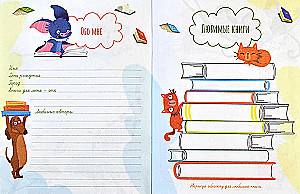 Обо мне
Имя
День рождения
Город
Книги для меня – это
Любимые авторы
Любимые книги
Нарисуй обложку для любимой книги.